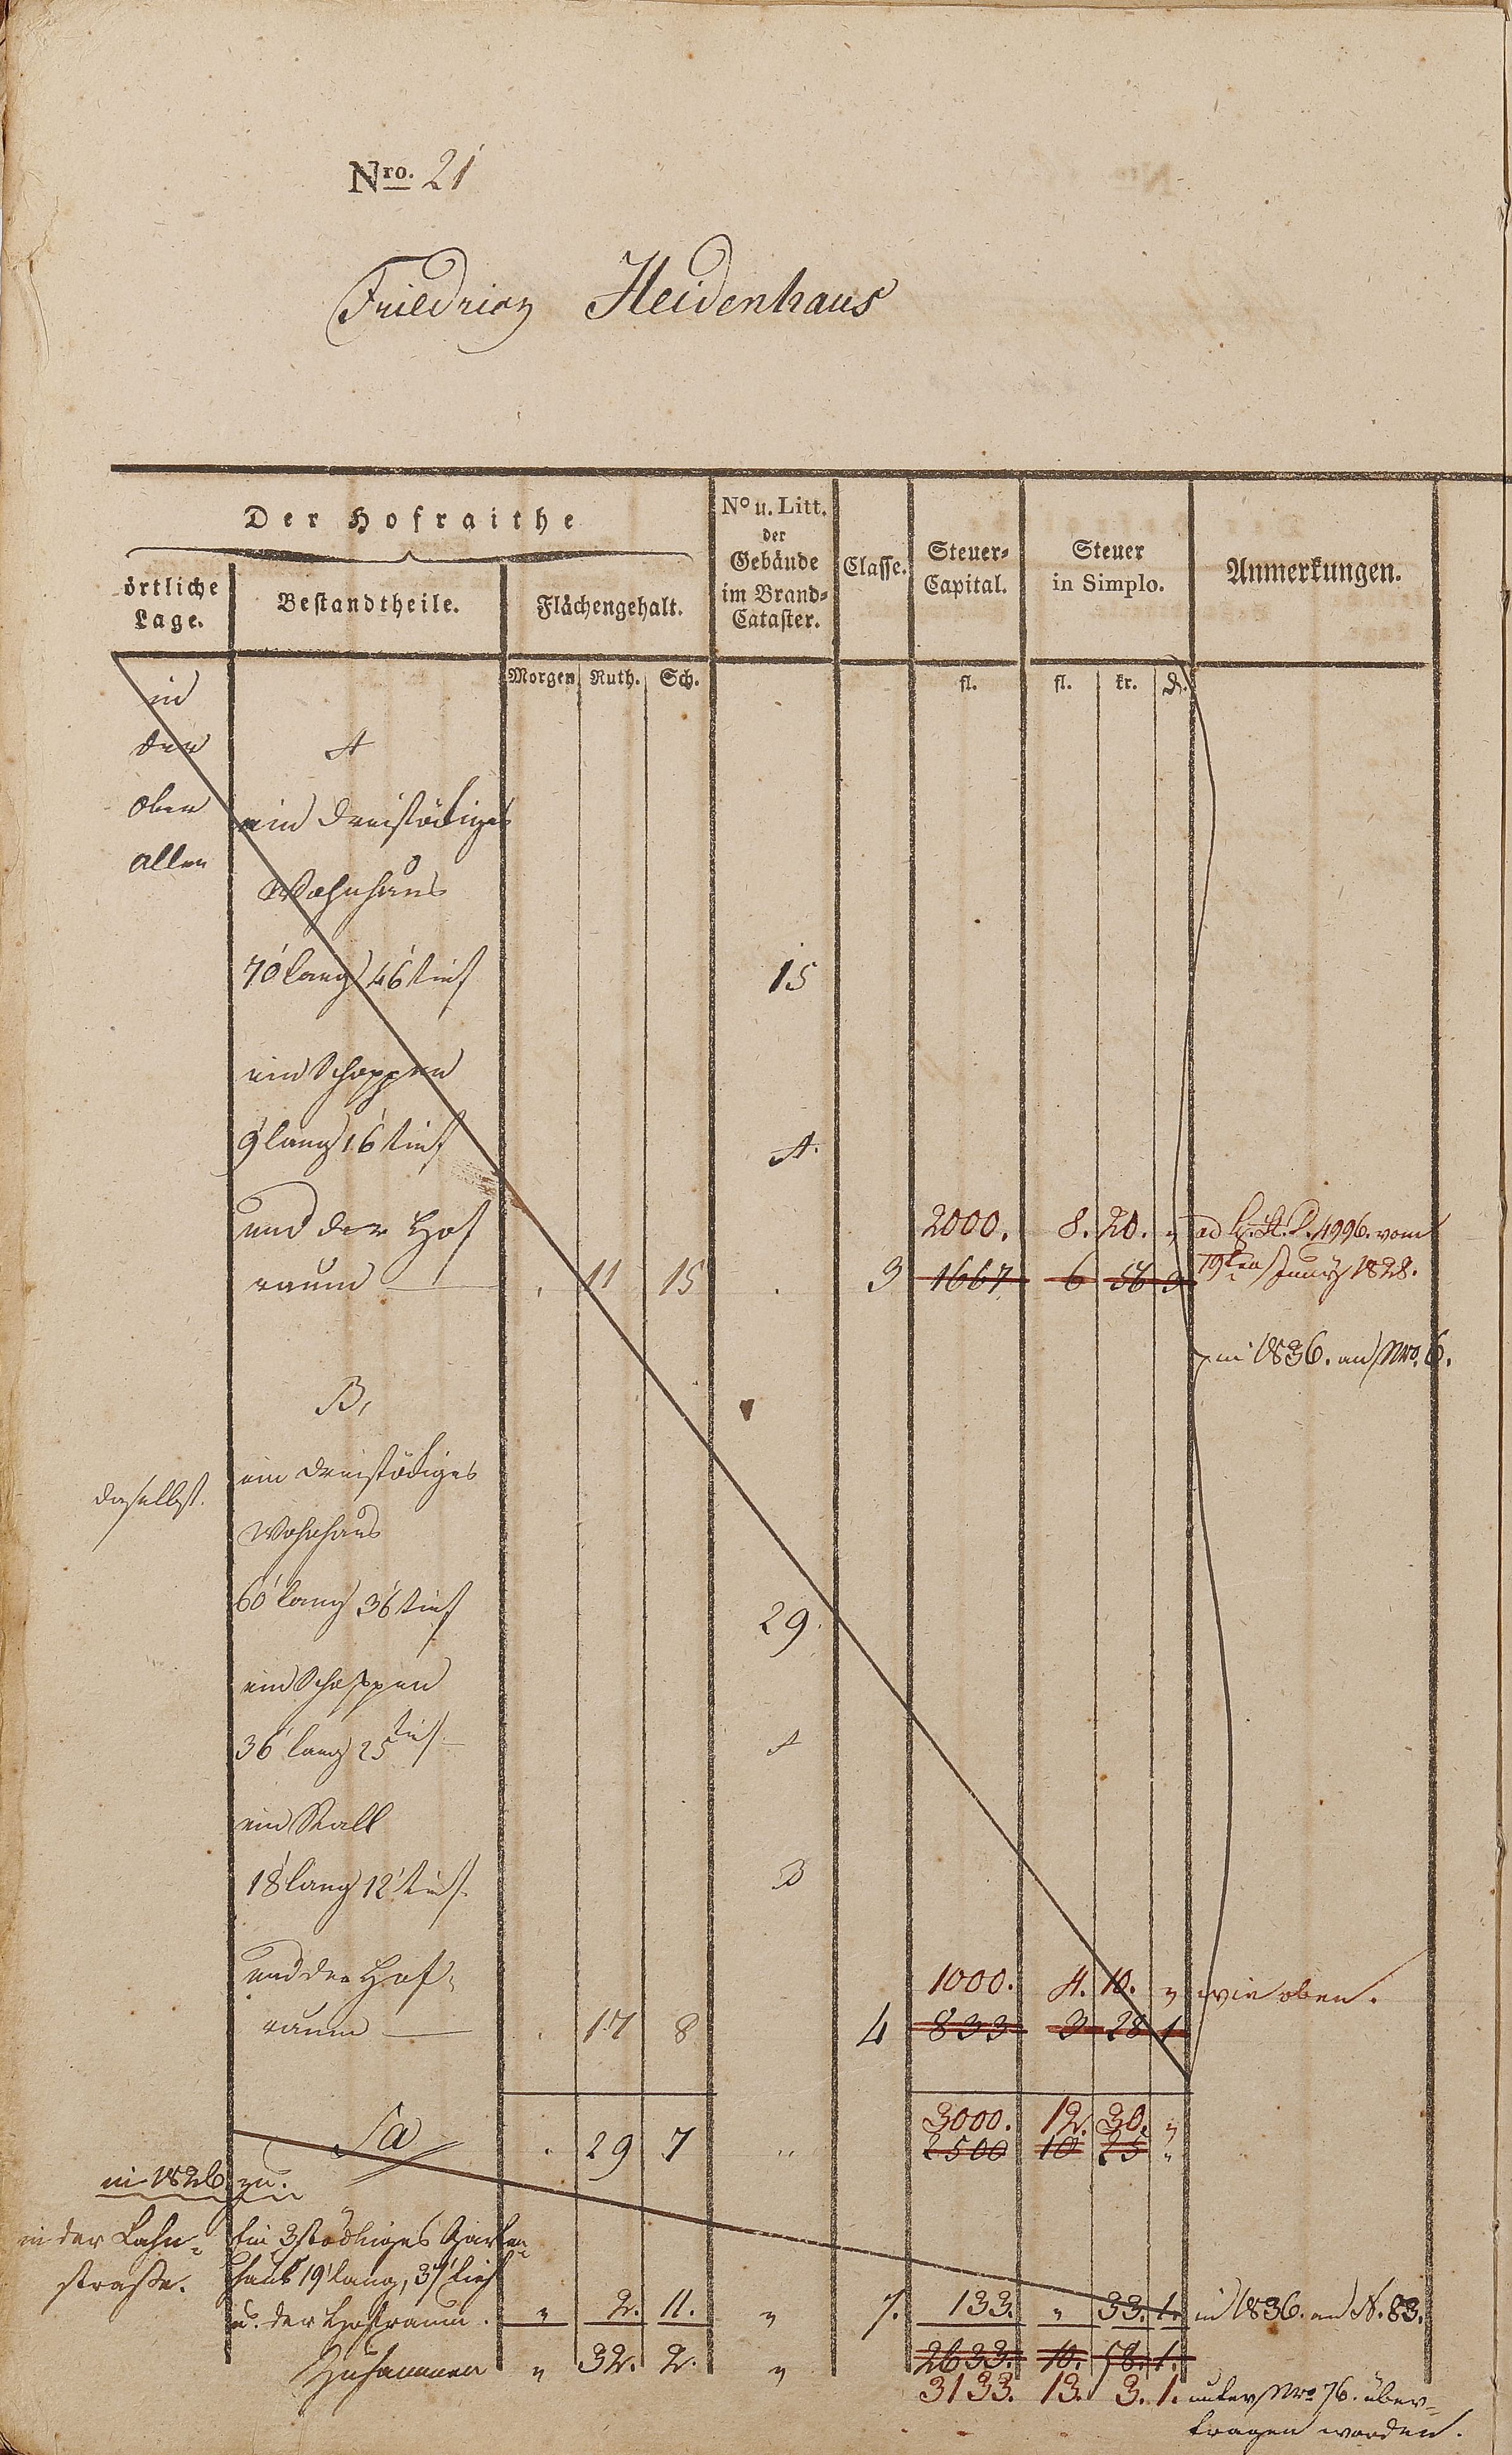 Nro. 21
Friedrich Heidenhaus
Der Hofraithe
örtliche Lage.
Bestandtheile.
Flächengehalt.
No u. Litt. der Gebäude im Brand-Cataster.
Classe.
Steuer-Capital.
Steuer in Simplo.
Anmerkungen.
Morgen Ruth. Sch. fl. fl. kr. d.
in
der A
ober ein dreistöckiges
allee
Wohnhaus
70' lang 46' tief 15
ein Schoppen
9' lang 16' tief A.
und der Hof 2000. 8. 20. " ad 4996. vom
raum — . 11 15 . 3 1667 6 56 3 19ten Juny 1828.
in 1836. an Nro. 6.
B,
ein dreistöckiges
daselbst.
Wohnhaus
60' lang 36' tief 29.
ein Schoppen
36' lang 25' tief A
ein Stall
18' lang 12' tief B
und der Hof- 1000. 4. 10. " wie oben.
raum — . 17 8 4 833 3 28 1
3000. 12. 30. "
Sa . 29 7 " 2500 10 25 "
in 1826 zu.
in der Lahn- Ein 3stöckiges Garten-
straße. haus 19' lang, 37' tief
u. der Hofraum. " 2. 11. " 7. 133. " 33. 1. in 1836. an N. 83.
Zusammen " 32. 2. " 2633. 10. 58. 1.
3133. 13. 3. 1. unter Nro 76. über-
tragen worden.